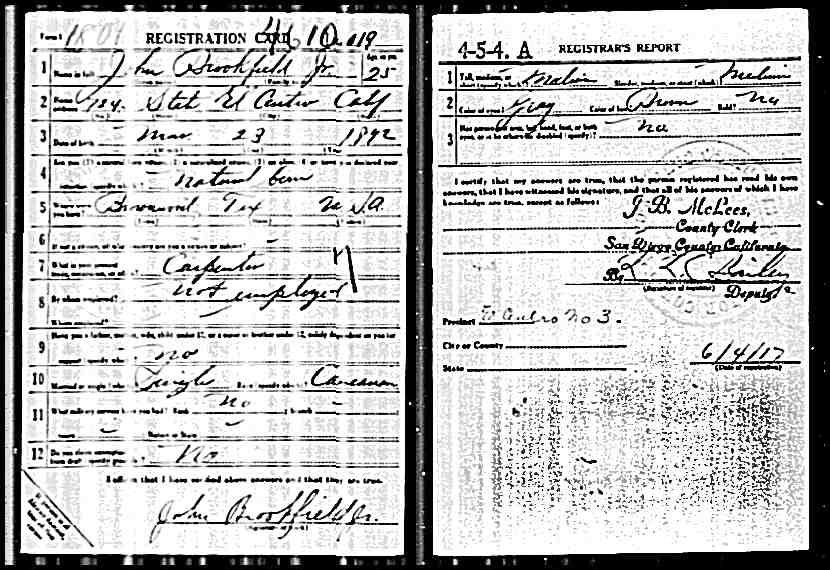 Form 1 1807 REGISTRATION CARD 4610 No. 19
1 Name in full John Brookfield Jr. Age, in yrs. 25
2 Home address 184 State El Centro Calif
3 Date of birth Mar. 23 1892
4 Are you (1) a natural born citizen, (2) a naturalized citizen, (3) an alien, (4) or have you declared your
intention (specify which)? natural born
5 Where were you born? Brownwood Tex U.S.A.
6 If not a citizen, of what country are you a citizen or subject? -
7 What is your present trade, occupation, or office? Carpenter
8 By whom employed? not employed
Where employed? -
9 Have you a father, mother, wife, child under 12, or a sister or brother under 12, solely dependent on you for
support (specify which)? no
10 Married or single (which)? Single Race (specify which)? Caucasian
11 What military service have you had? Rank no branch -
years - Nation or State -
12 Do you claim exemption from draft (specify grounds)? No
I affirm that I have verified above answers and that they are true.
John Brookfield Jr.
4-5-4. A REGISTRAR'S REPORT
1 Tall, medium, or short (specify which)? Medium Slender, medium, or stout (which)? Medium
2 Color of eyes? Gray Color of hair? Brown Bald? No
3 Has person lost arm, leg, hand, foot, or both
eyes, or is he otherwise disabled (specify)? No
I certify that my answers are true, that the person registered has read his own
answers, that I have witnessed his signature, and that all of his answers of which I have
knowledge are true, except as follows:
J. B. McLees,
County Clerk
San Diego County, California
By
(Signature of registrar)
Deputy
Precinct El Centro No 3.
City or County
State
6/4/17
(Date of registration)